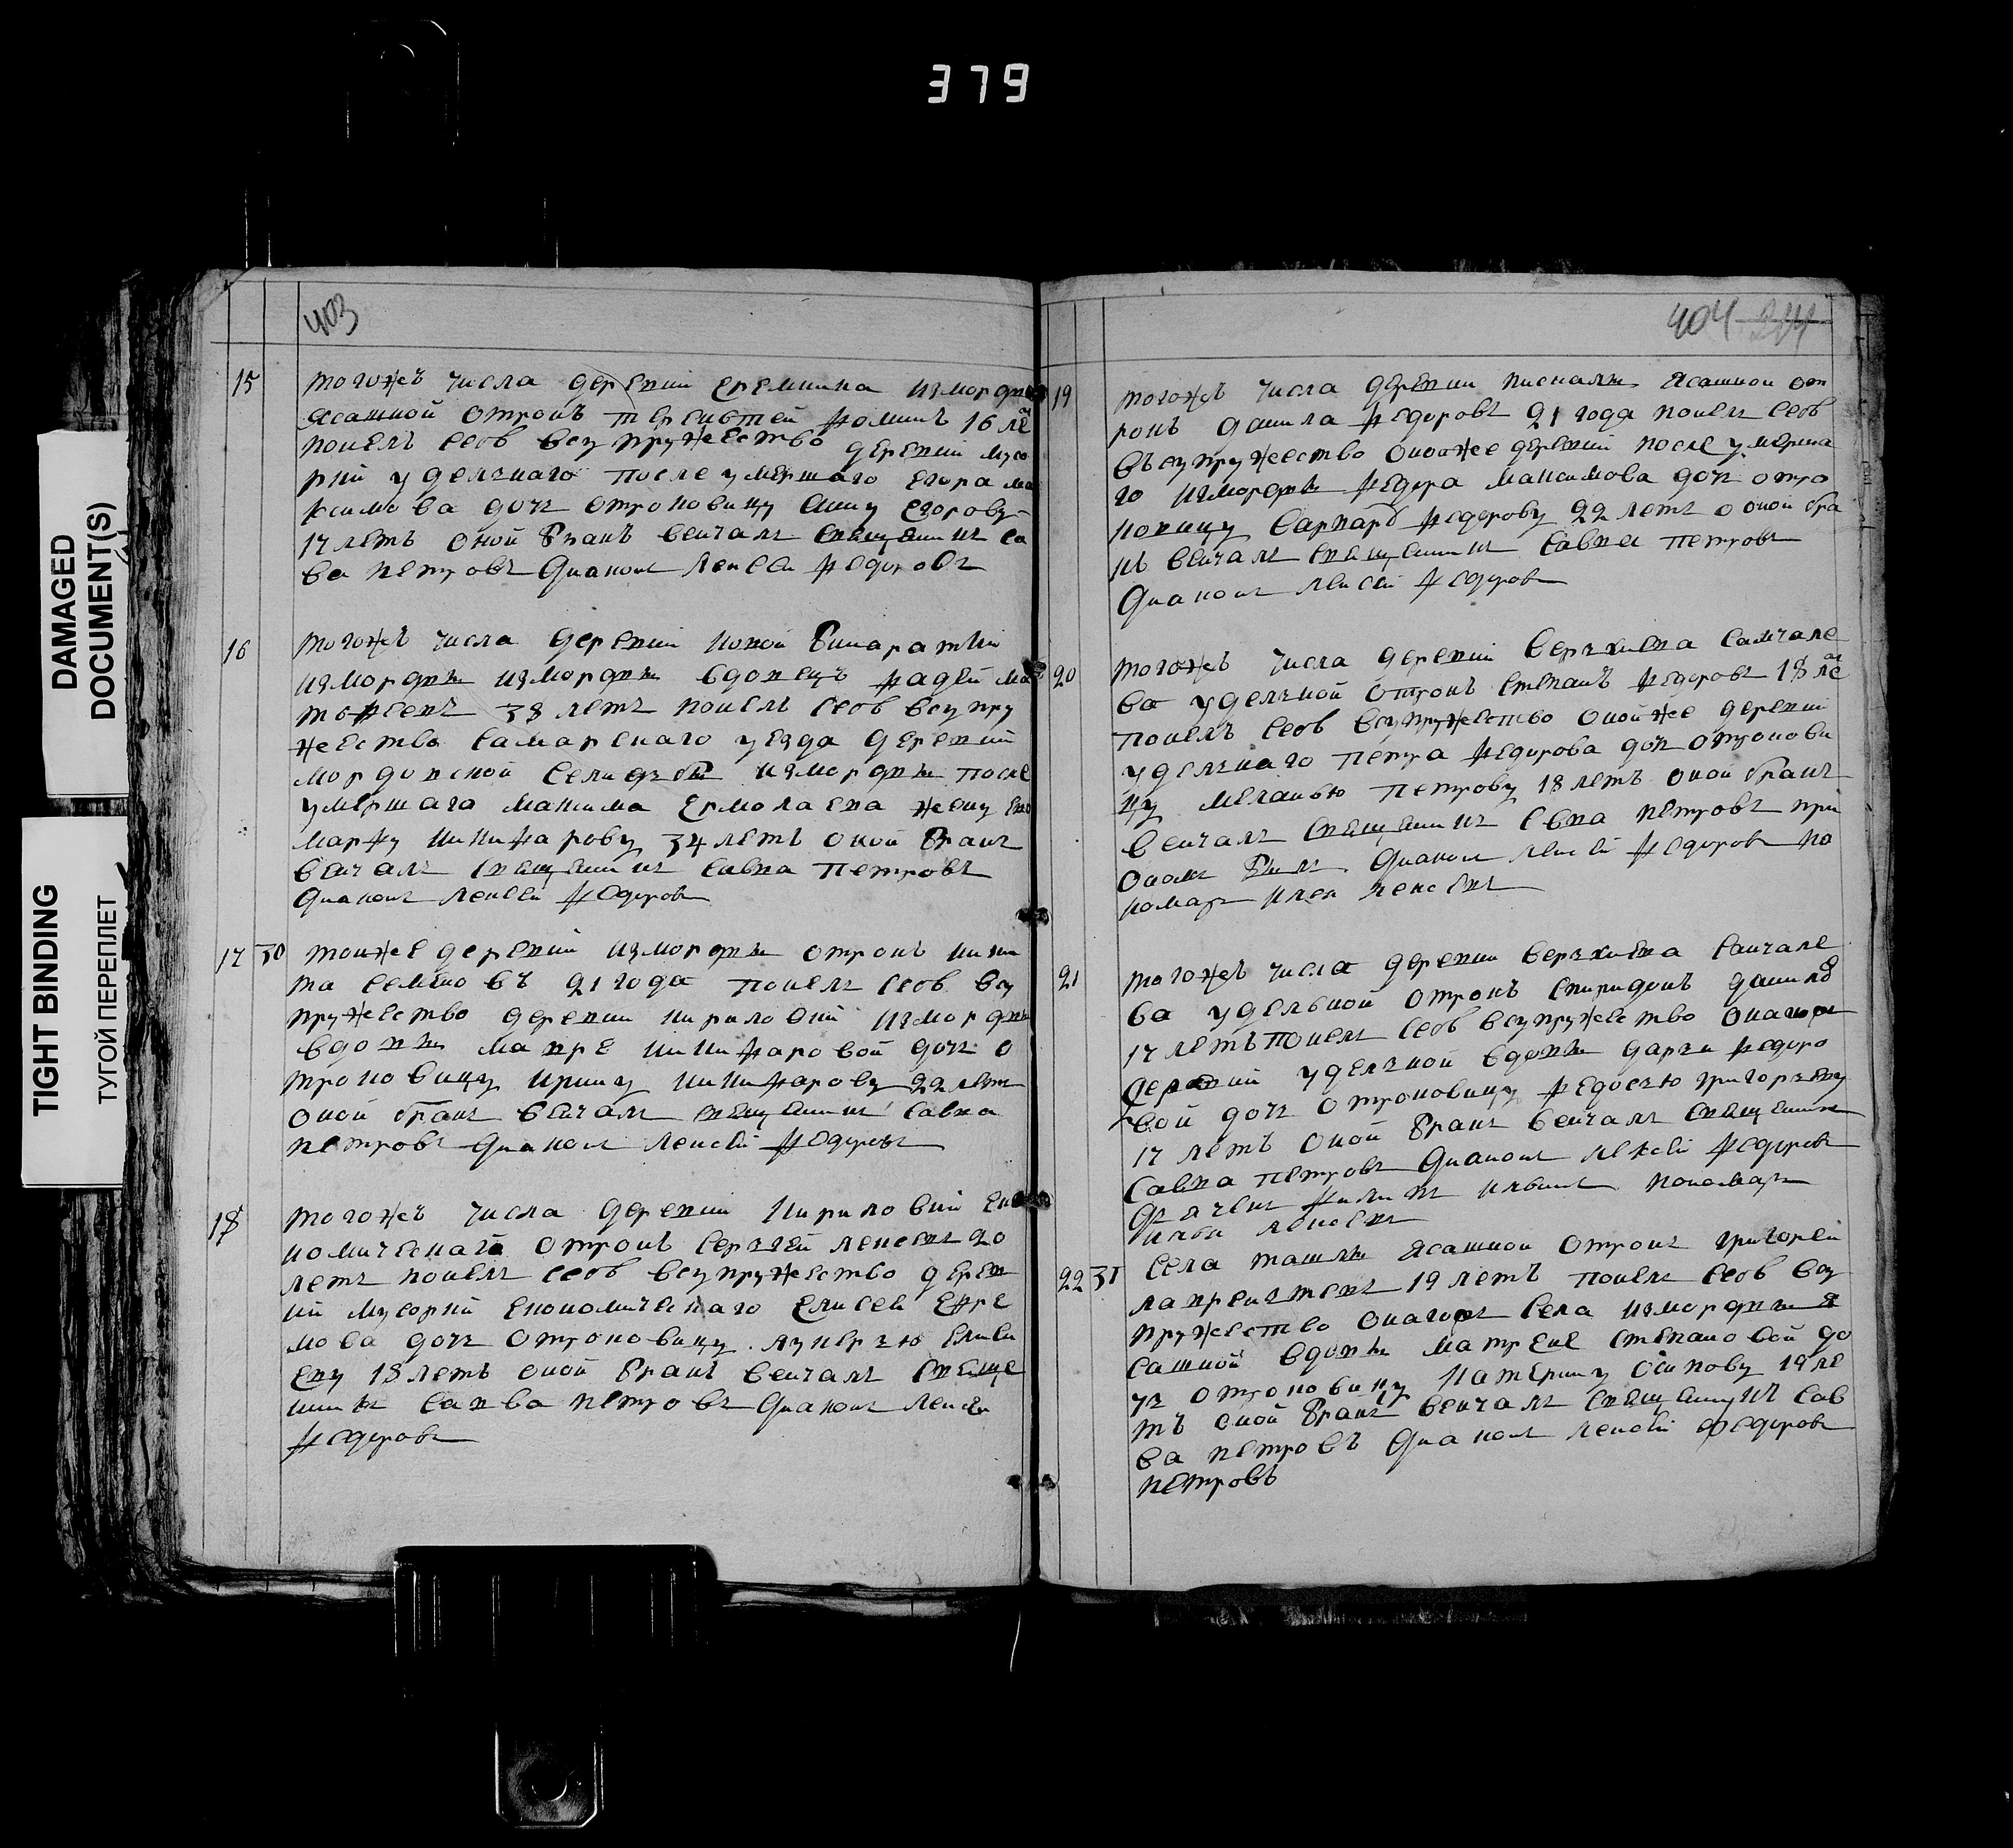 379
DAMAGED
DOCUMENT(S)
TIGHT BINDING
ТУГОЙ ПЕРЕПЛЕТ
403
15 тогожъ числа деревни еремкина измордвы
ясашной отрокъ терентей фоминъ 16 ле
понелъ себѣ всупружество деревни мусо
рки уделнаго после умершаго егора ма
ксимова дочь отроковицу анну егорову
17 летъ оной бракъ венчалъ священникъ са
ва петровъ диаконъ лексеи федоровъ
16 тогожъ числа деревни новой
измордвы измордвы вдовецъ фадей ма
тофеевъ 38 летъ понелъ себѣ всупру
жество самарскаго уезда деревни
мордовской селидьбы измордвы после
умершаго максима ермолаева жену ево
марфу никифарову 34 летъ оной бракъ
венчалъ священникъ савва петровъ
диаконъ лексеи федоровъ
17 30 тоижже деревни измордвы отрокъ ники
та семеновъ 21 года понелъ себѣ всу
пружество деревни кириловки измордвы
вдовы мавре никифаровой дочь о
троковицу ирину никифарову 22 летъ
оной бракъ венчалъ священникъ савва
петровъ диаконъ лексей федоровъ
18 тогожъ числа деревни кириловки еко
номическаго отрокъ сергей лексевъ 20
летъ понелъ себѣ всупружество дерев
ни мусорки економическаго елисея ефре
мова дочь отроковицу лукерью елисе
еву 18 летъ оной бракъ венчалъ свяще
нникъ савва петровъ диаконъ лексеи
федоровъ
404 214
19 тогожъ числа деревни пискалы ясашной от
рокъ данила федоровъ 21 года понелъ себѣ
въсупружество оноӣже деревни после умерша
го измордвы федора максимова дочь отро
ковицу варвару федорову 22 летъ оной бра
къ венчалъ священникъ савва петровъ
диаконъ лексей федоровъ
20 тогожъ числа деревни верхнева санчале
ва уделной отрокъ степанъ федоровъ 18 ле
понелъ себѣ всупружество оной же деревни
уделнаго петра федорова дочь отрокови
цу меланью петрову 18 летъ оной бракъ
венчалъ священникъ савва петровъ при
ономъ былъ диаконъ лексей федоровъ по
номарь илья лексевъ
21 тогожъ числа деревни верхнева санчале
ва уделеной отрокъ спиридонъ данилов
17 летъ понелъ себѣ всупружество онагожъ
деревни уделной вдовы дарьи федоро
вой дочь отроковицу федосью григорьеву
17 летъ оной бракъ венчалъ священникъ
савва петровъ диаконъ лексей федоровъ
дьячекъ филипъ ивановъ пономарь
илья лексевъ
22 31 села ташлы ясашной отрокъ григорей
лаврентевъ 19 летъ понелъ себѣ всу
пружество онагожъ села измордвы я
сашной вдовы матрене степановой до
чь отроковицу катерину осипову 19 ле
тъ оной бракъ венчалъ священникъ сав
ва петровъ диаконъ лексей федоровъ
петровъ